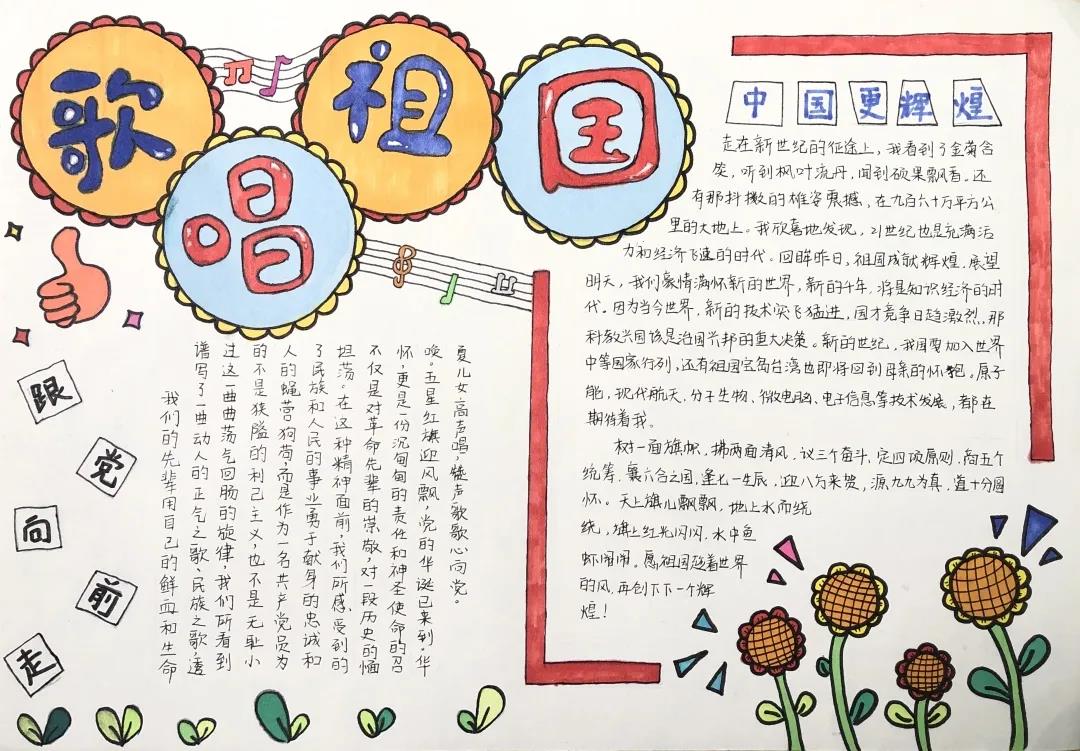 歌唱祖国
跟党向前走
我们的先辈用自己的鲜血和生命
谱写了一曲动人的正气之歌、民族之歌,透
过这一曲曲荡气回肠的旋律,我们所看到
的不是狭隘的利己主义,也不是无耻小
人的蝇营狗苟,而是作为一名共产党员为
了民族和人民的事业勇于献身的忠诚和
坦荡。在这种精神面前,我们所感受到的
不仅是对革命先辈的崇敬,对一段历史的缅
怀,更是一份沉甸甸的责任和神圣使命的召
唤。五星红旗迎风飘,党的华诞已来到。华
夏儿女高声唱,声歌歌心向党。
中国更辉煌
走在新世纪的征途上,我看到了金菊含
笑,听到枫叶流丹,闻到硕果飘香。还
有那抖擞的雄姿震撼,在九百六十万平方公
里的大地上。我欣喜地发现,21世纪也是充满活
力和经济飞速的时代。回眸昨日,祖国成就辉煌.展望
明天,我们豪情满怀新的世界,新的千年,将是知识经济的时
代。因为当今世界,新的技术突飞猛进,国才竞争日趋激烈,那
科教兴国该是治国兴邦的重大决策。新的世纪,我国要加入世界
中等国家行列,还有祖国宝岛台湾也即将回到母亲的怀抱。原子
能,现代航天、分子生物、微电脑、电子信息等技术发展,都在
期待着我。
树一面旗帜,拂两面清风,议三个奋斗,定四项原则,商五个
统筹,襄六合之国,逢七一生辰,迎八方来贺,源九九为真,直十分圆
怀。天上旗儿飘飘,地上水而绕
绕,旗上红光闪闪,水中鱼
虾闹闹。愿祖国趁着世界
的风,再创下下一个辉
煌!